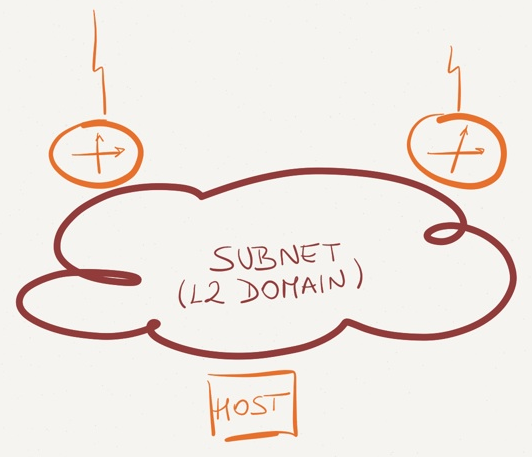 SUBNET
(L2 DOMAIN)
HOST